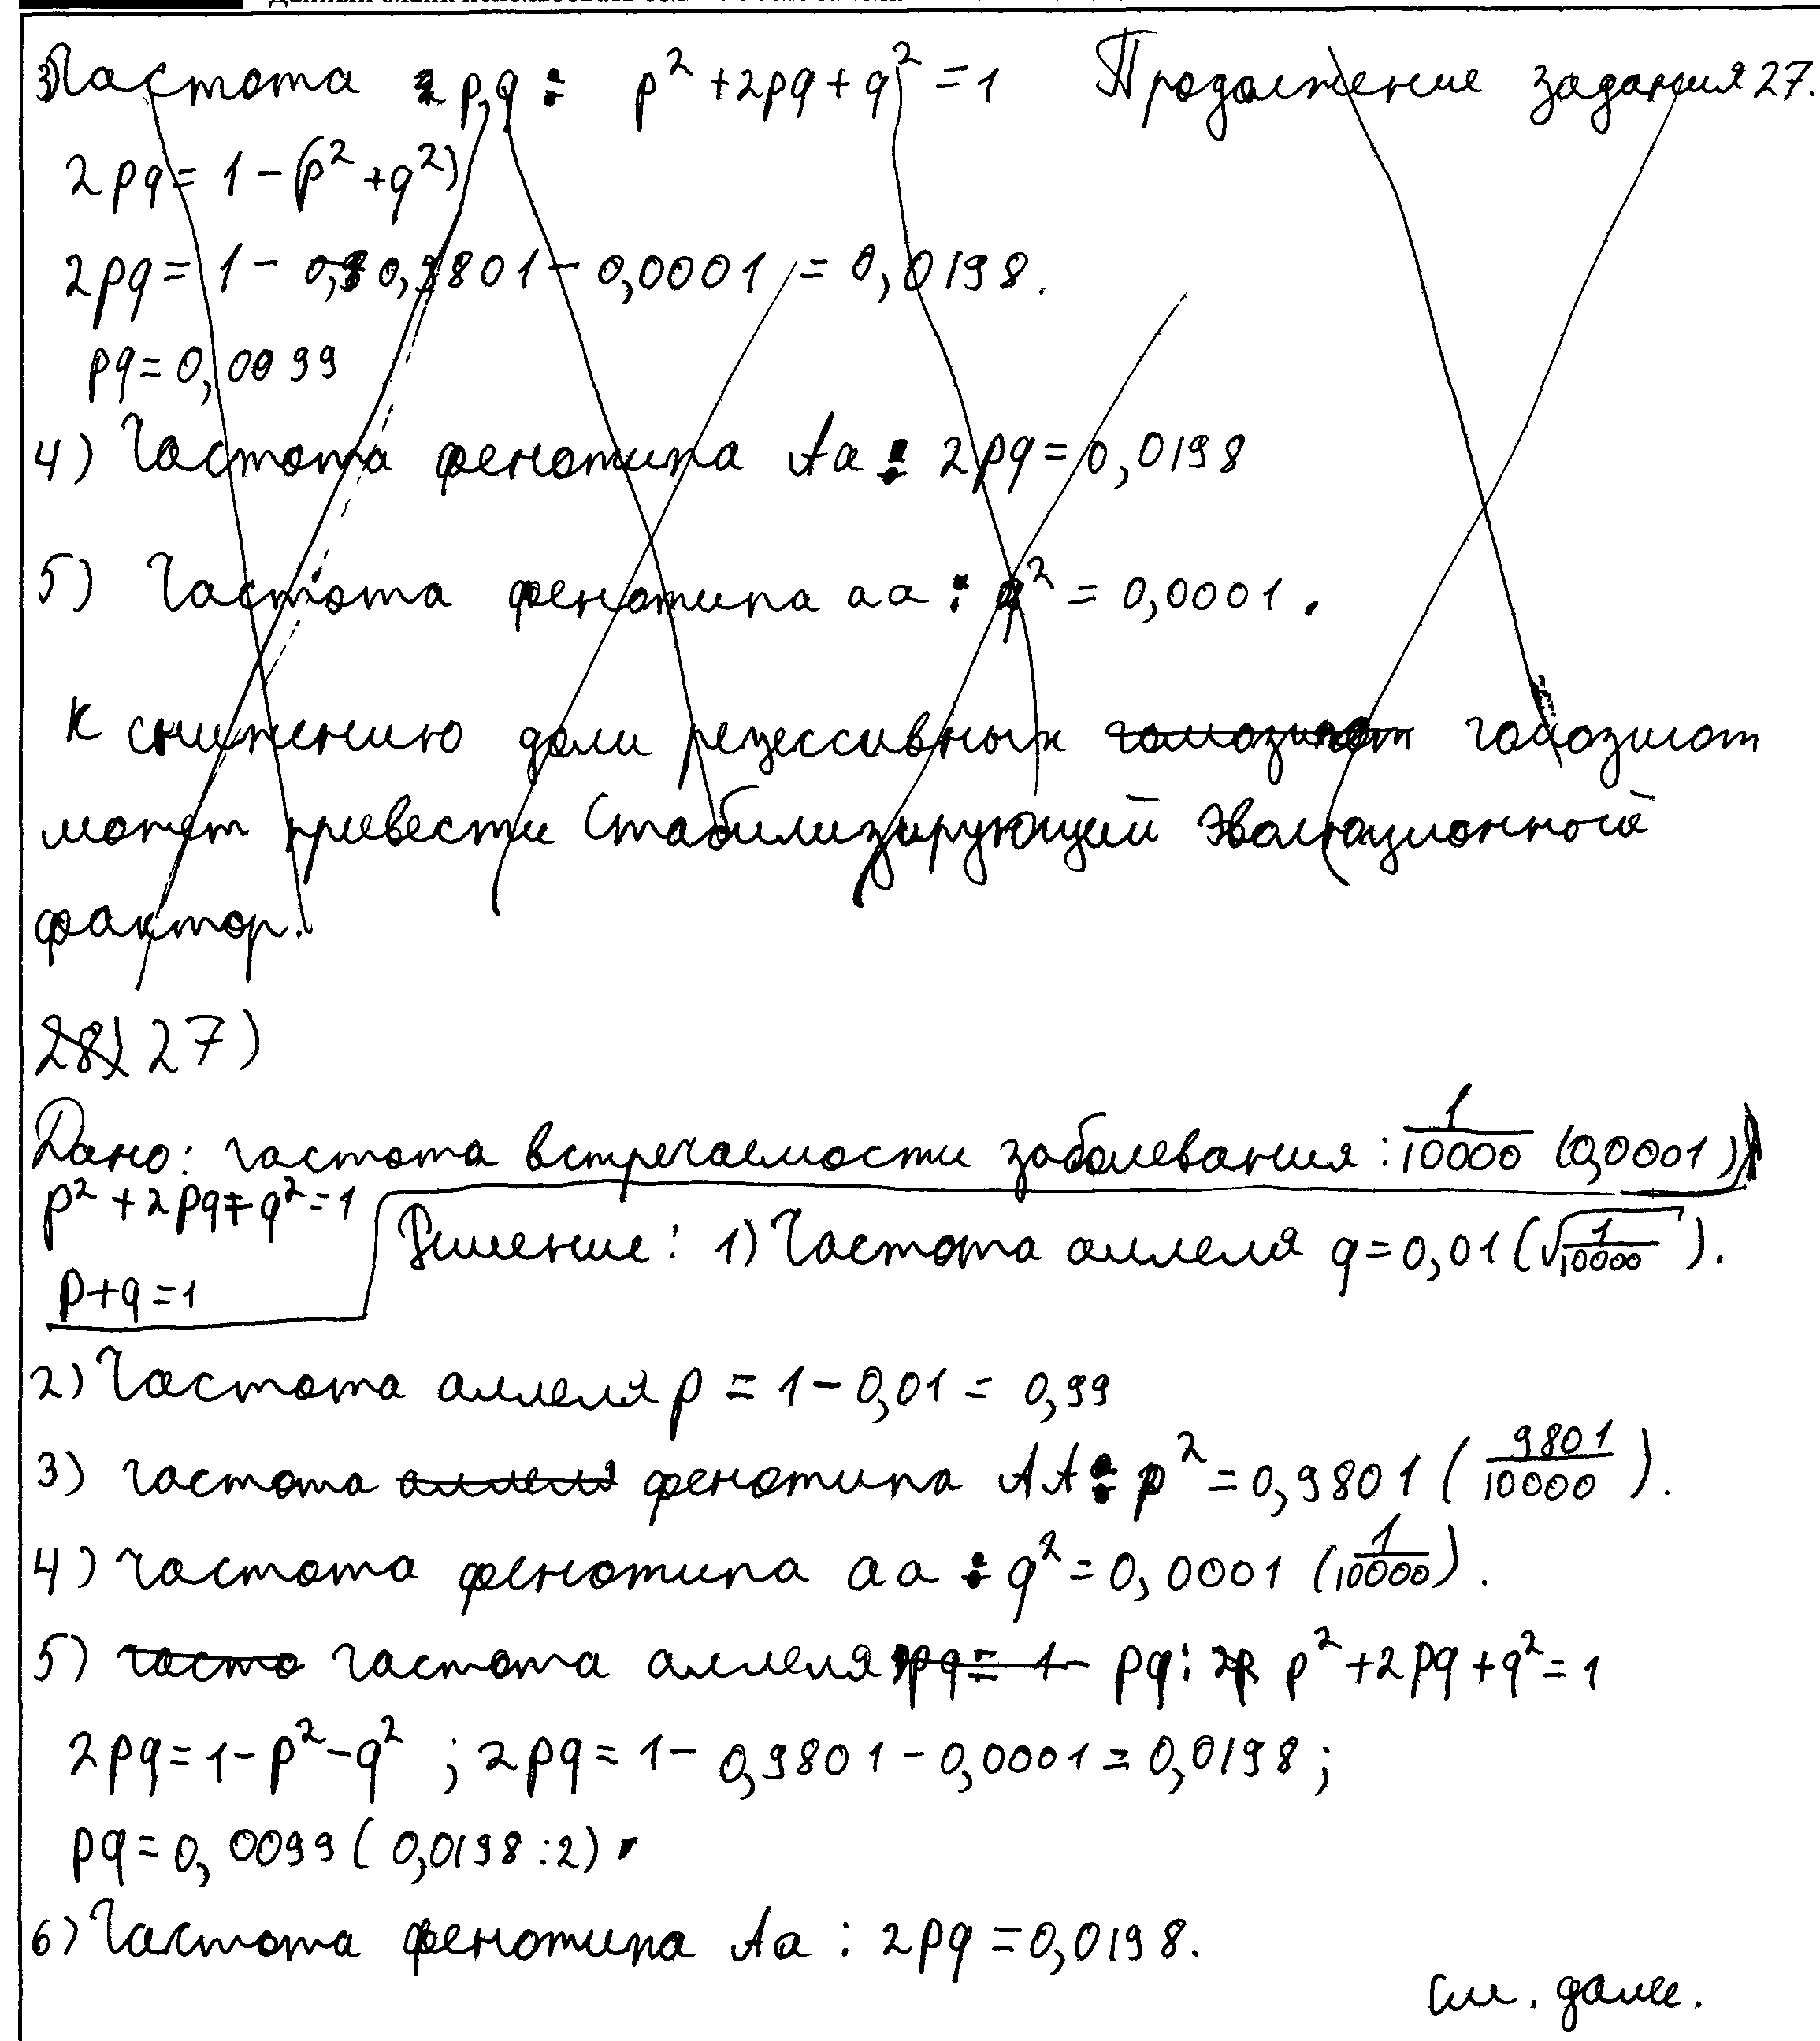 3) Частота p,q: p² + 2pq + q² = 1 Продолжение задания 27.
2pq = 1 - (p² + q²)
2pq = 1 - 0,9801 - 0,0001 = 0,0198.
pq = 0,0099
4) Частота фенотипа Aa: 2pq = 0,0198
5) Частота фенотипа aa: q² = 0,0001.
К снижению доли рецессивных гомозигот гомозигот
может привести Стабилизирующий эволюционной
фактор.
28) 27)
Дано: частота встречаемости заболевания: 1/10000 (0,0001)
p² + 2pq + q² = 1
p + q = 1
Решение: 1) Частота аллеля q = 0,01 (√1/10000).
2) Частота аллеля p = 1 - 0,01 = 0,99
3) частота аллеля фенотипа AA: p² = 0,9801 (9801/10000).
4) частота фенотипа aa: q² = 0,0001 (1/10000).
5) часто частота аллеля pq = 1 - pq: p² + 2pq + q² = 1
2pq = 1 - p² - q² ; 2pq = 1 - 0,9801 - 0,0001 = 0,0198;
pq = 0,0099 (0,0198:2).
6) Частота фенотипа Aa: 2pq = 0,0198.
См. далее.